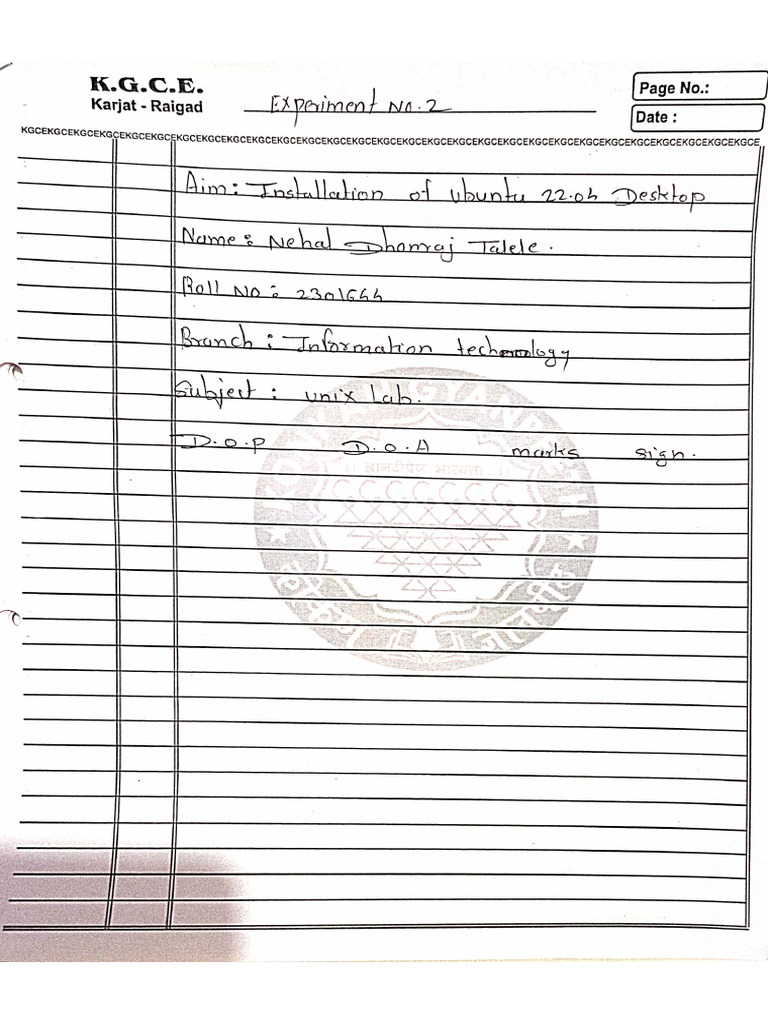 K.G.C.E.
Karjat - Raigad
Experiment No. 2
Page No.:
Date :
KGCEKGCEKGCEKGCEKGCEKGCEKGCEKGCEKGCEKGCEKGCEKGCEKGCEKGCEKGCEKGCEKGCEKGCEKGCEKGCEKGCEKGCEKGCEKGCEKGCEKGCEKGCE
Aim: Installation of ubuntu 22.04 Desktop
Name: Nehal Dhanraj Talele.
Roll No: 2301644
Branch: Information technology
Subject: unix Lab.
D.O.P D.O.A marks sign.